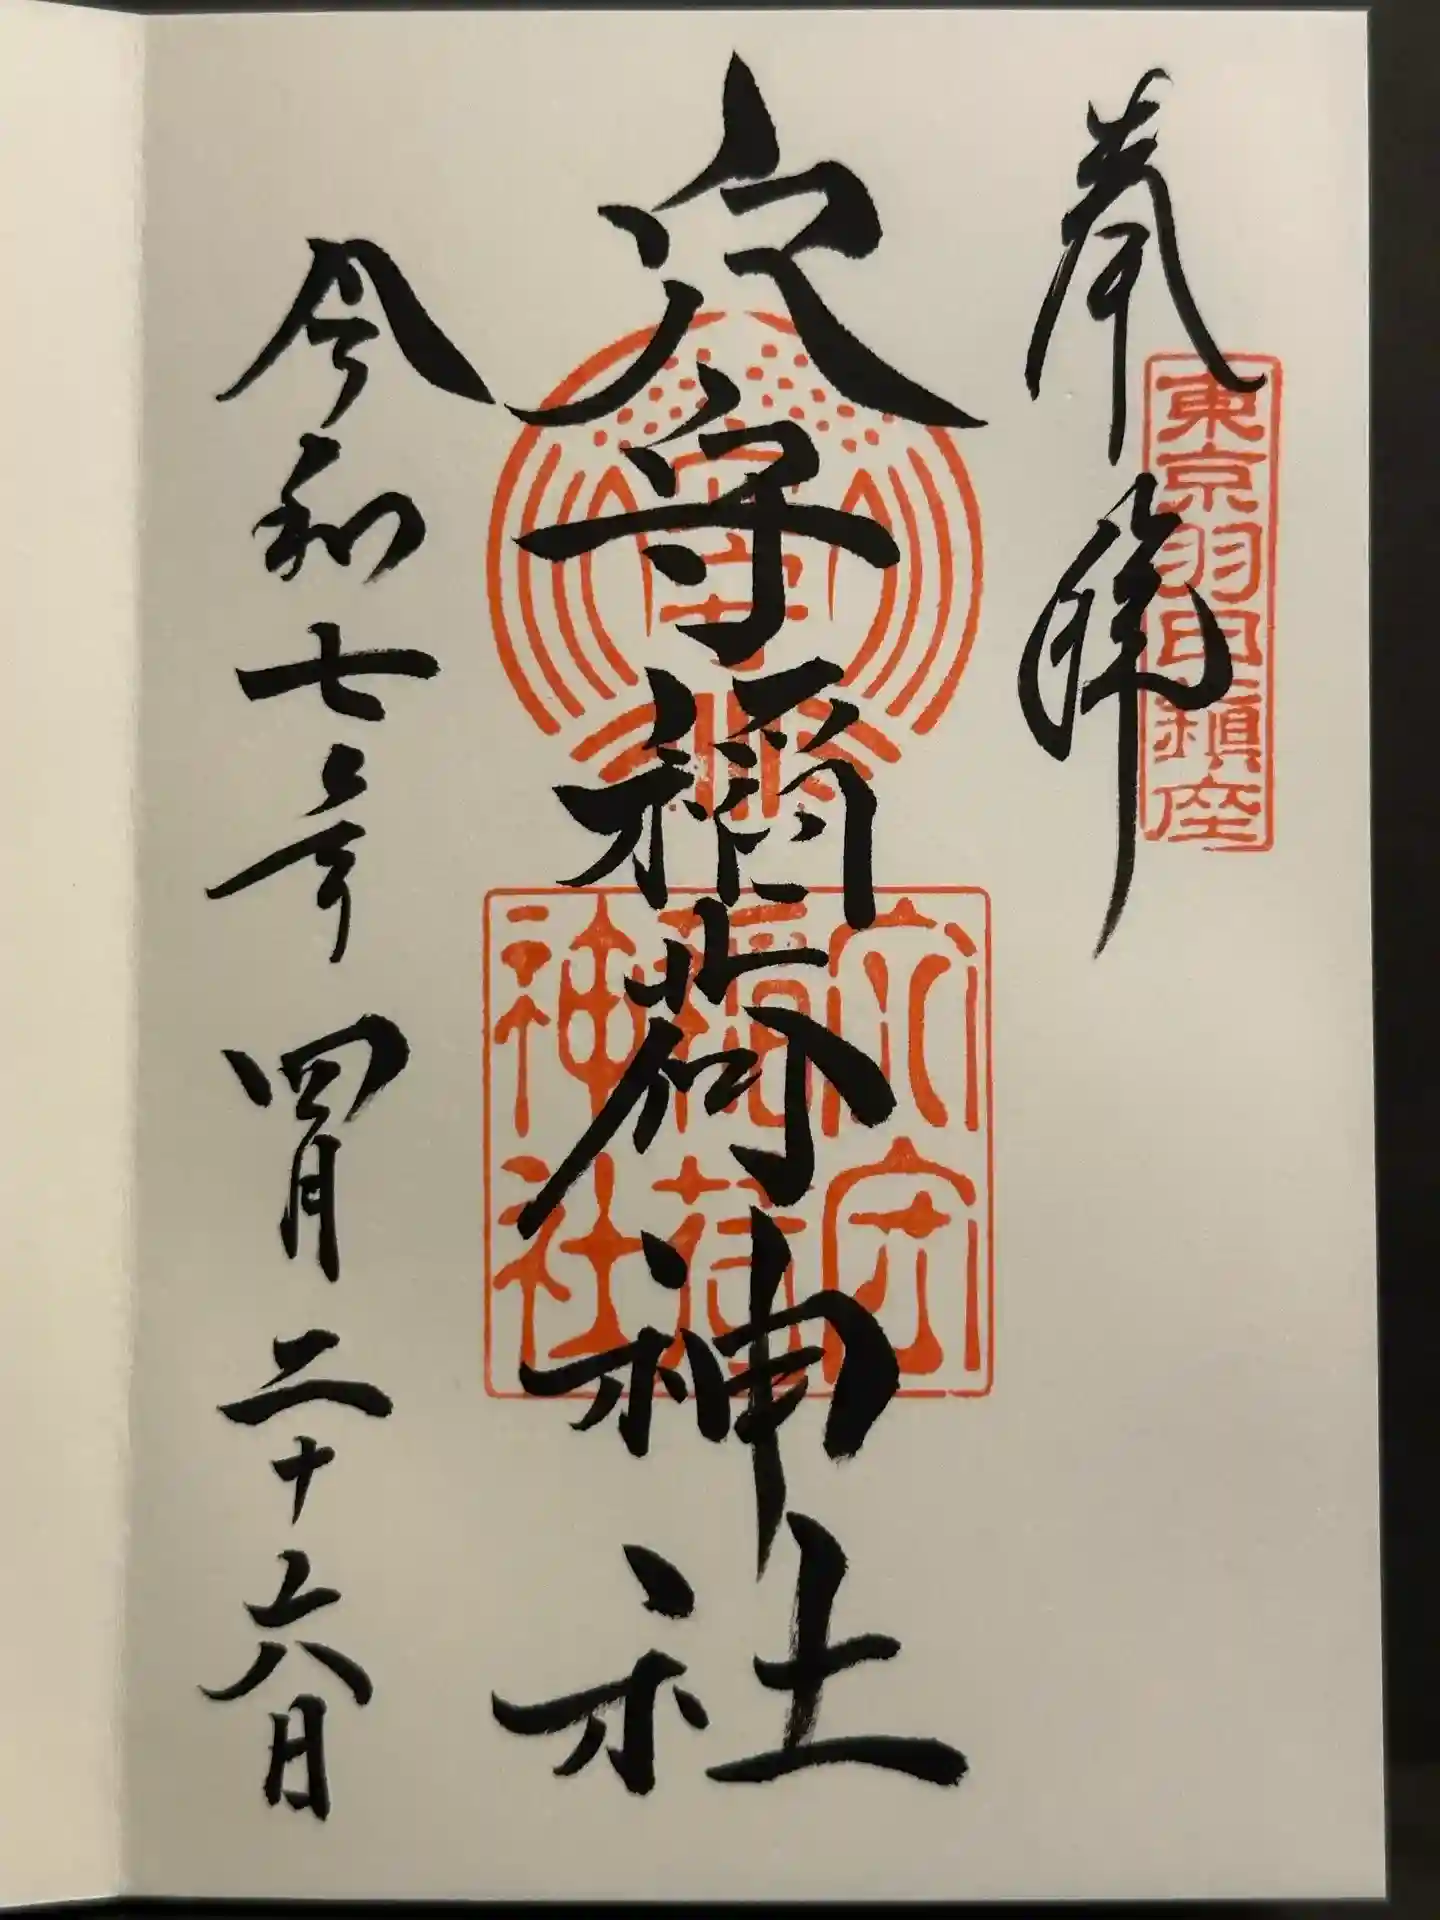 奉拝
東京羽田鎮座
穴守稲荷神社
穴守
稲荷
神社
令和七年四月二十六日